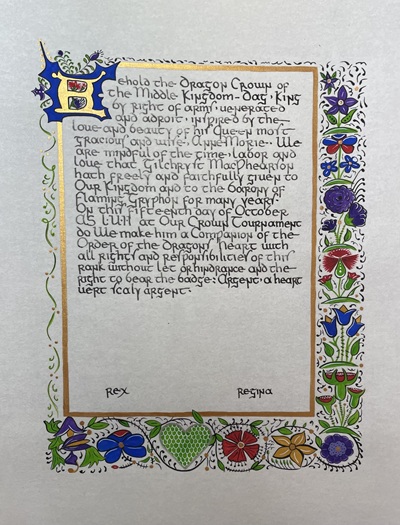 Behold the Dragon Crown of
the Middle Kingdom - Dag · King
by right of arms · venerated
and adroit · inspired by the
love and beauty of his Queen most
gracious and wise · AnneMarie · We
are mindful of the time · labor and
love that Gilchryst MacPhearson
hath freely and faithfully given to
Our Kingdom and to the Barony of
Flaming Gryphon for many years ·
On this fifteenth day of October
AS LVII at Our Crown Tournament
do We make him a Companion of the
Order of the Dragons' Heart with
all rights and responsibilities of this
rank without let or hindrance and the
right to bear the badge: Argent · a heart
vert scaly argent ·
Rex Regina